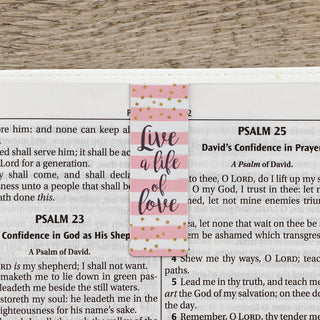 2
ore him: and none can keep al
d shall serve him; it shall be ac
Lord for a generation.
y shall come, and shall decla
ness unto a people that shall b
ath done this.
PSALM 23
Confidence in God as His Shep
A Psalm of David.
RD is my shepherd; I shall not want.
maketh me to lie down in green pas-
leadeth me beside the still waters.
storeth my soul: he leadeth me in the
righteousness for his name's sake.
Live
a life
of
love
PSALM 25
David's Confidence in Prayer
A Psalm of David.
to thee, O LORD, do I lift up my s
O my God, I trust in thee: let n
mine enemies
ea, let none that wait on thee be a
em be ashamed which transgress
4 Shew me thy ways, O LORD; teac
paths.
5 Lead me in thy truth, and teach me
art the God of my salvation; on thee do
day.
6 Remember, O LORD, thy tender me